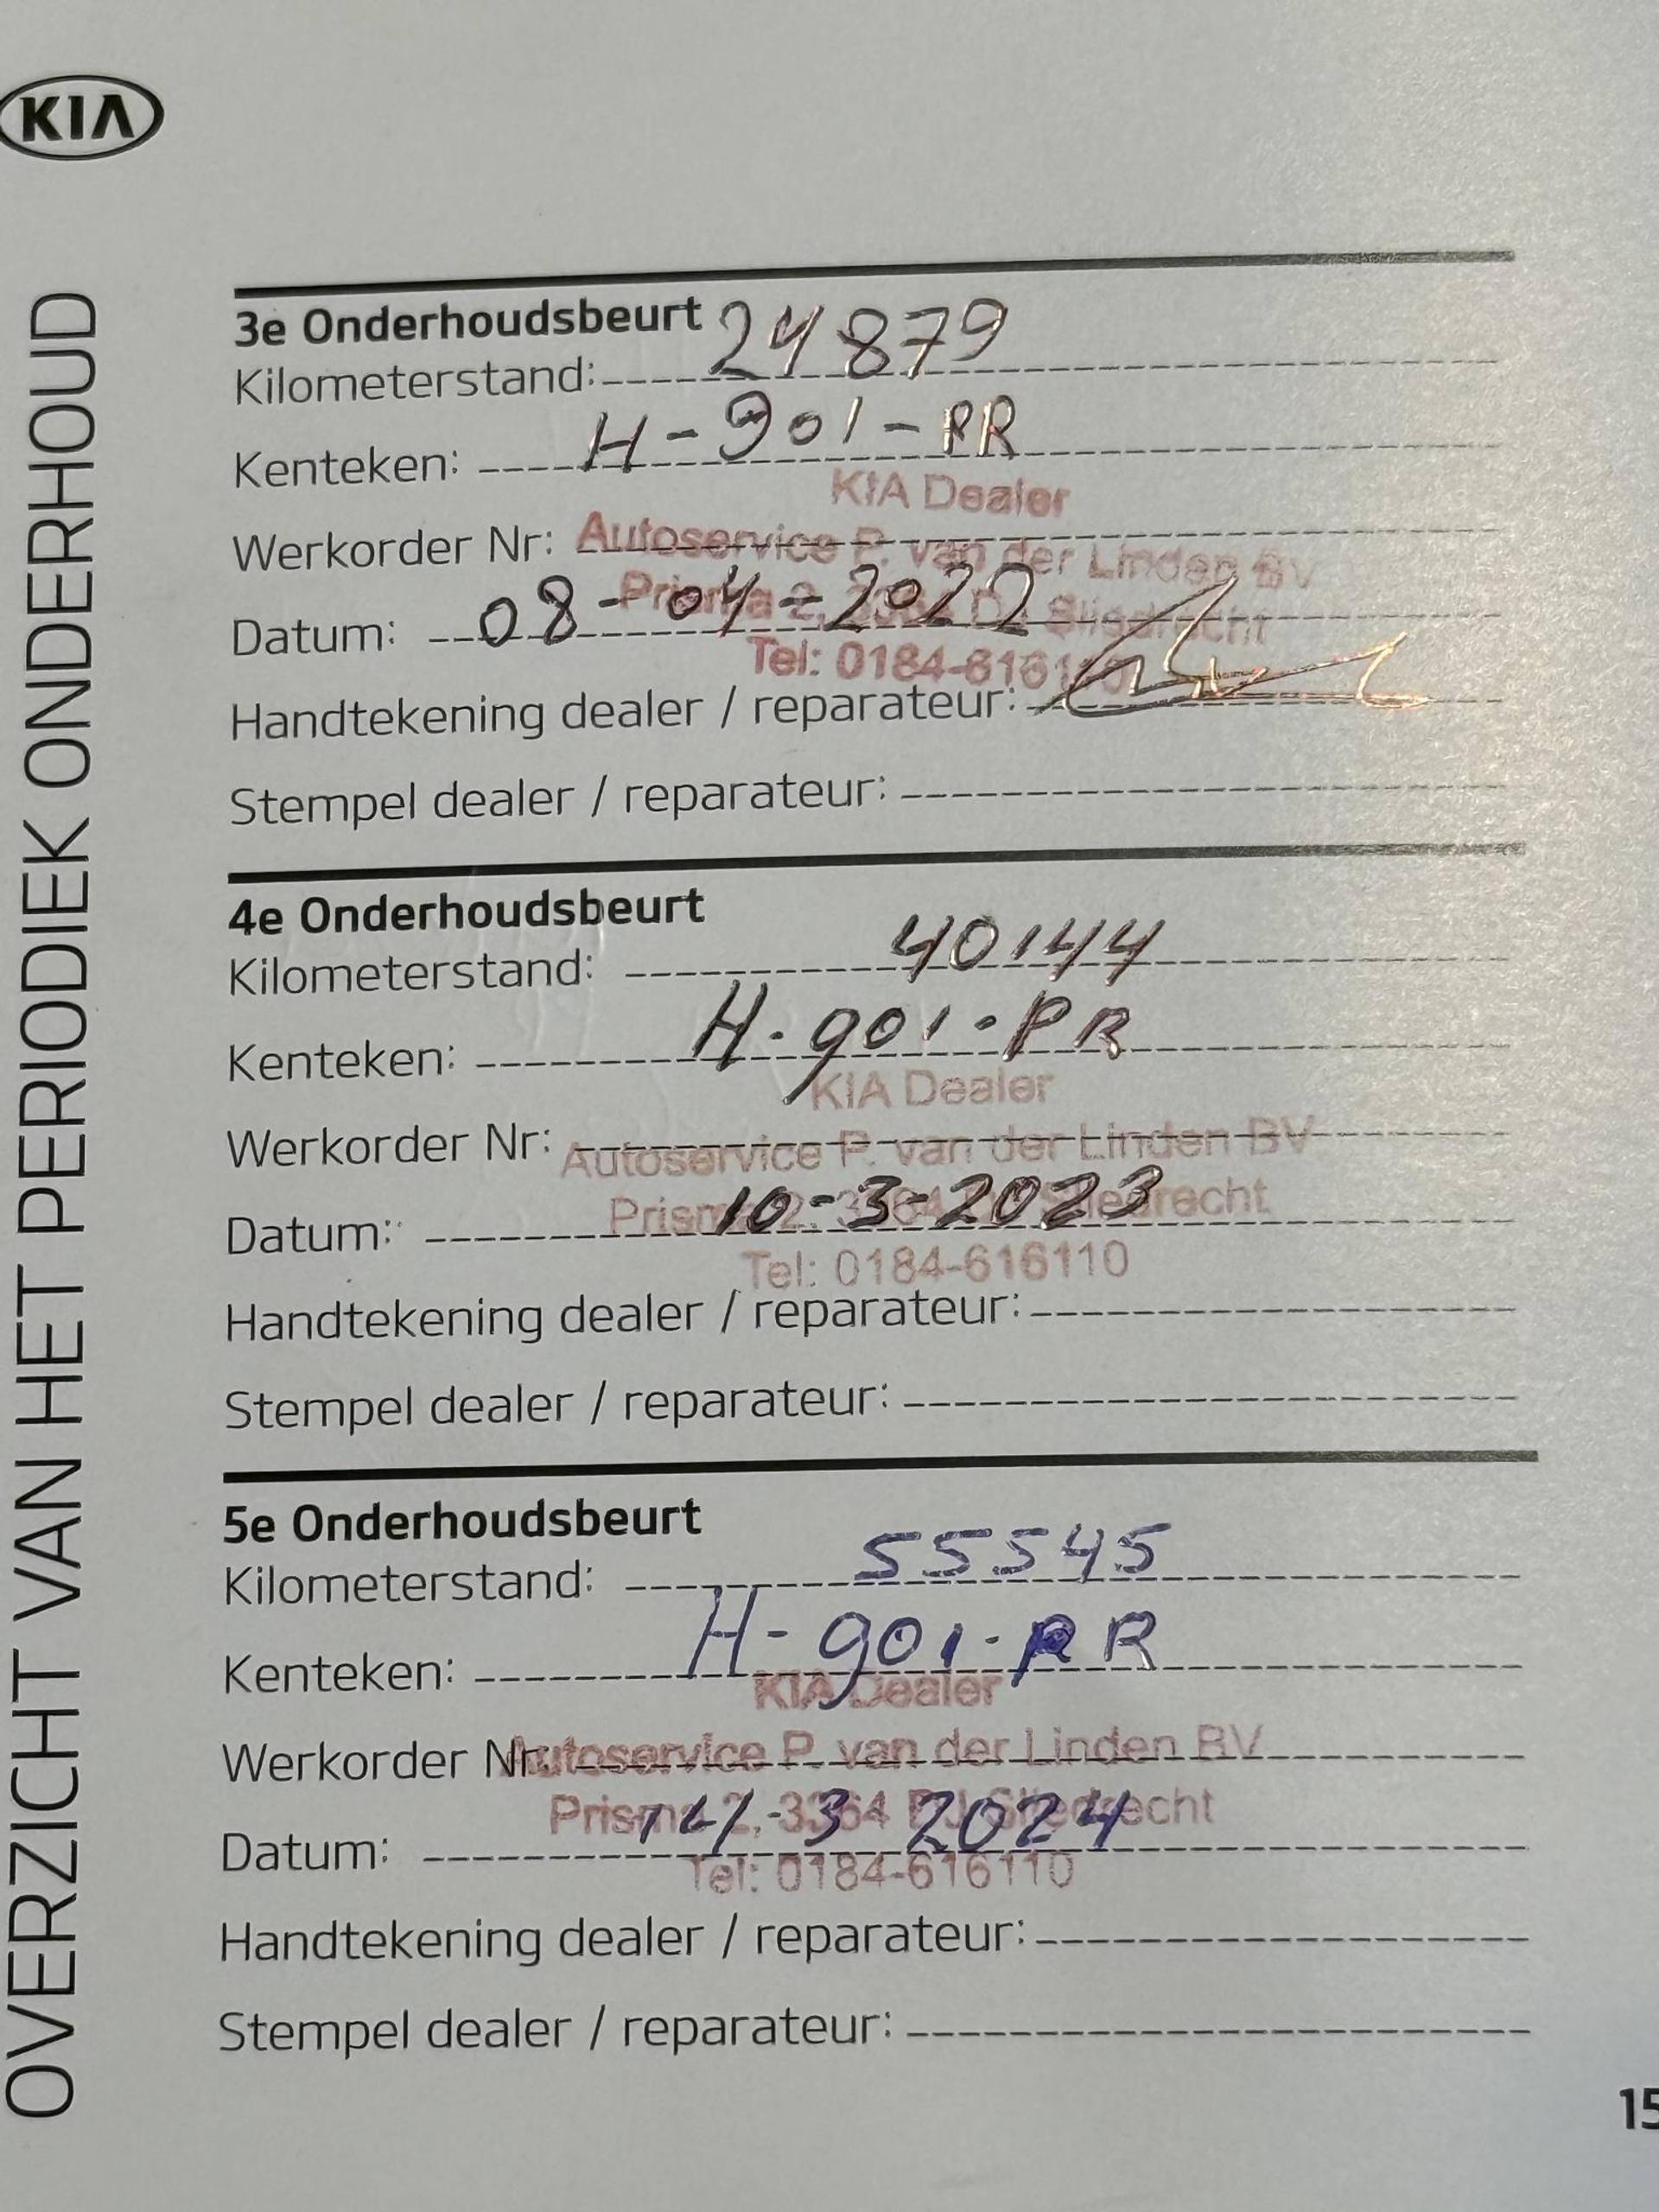 KIA
OVERZICHT VAN HET PERIODIEK ONDERHOUD
3e Onderhoudsbeurt
Kilometerstand: 24879
Kenteken: H-901-PR
KIA Dealer
Werkorder Nr:
Autoservice P. van der Linden BV
Prisma 2, Sliedrecht
Datum: 08-04-2022
Tel: 0184-616110
Handtekening dealer / reparateur:
Stempel dealer / reparateur:
4e Onderhoudsbeurt
Kilometerstand: 40144
Kenteken: H-901-PR
KIA Dealer
Werkorder Nr:
Autoservice P. van der Linden BV
Prisma 2, 3364 Sliedrecht
Datum: 10-3-2023
Tel: 0184-616110
Handtekening dealer / reparateur:
Stempel dealer / reparateur:
5e Onderhoudsbeurt
Kilometerstand: 55545
Kenteken: H-901-PR
KIA Dealer
Werkorder Nr:
Autoservice P. van der Linden BV
Prisma 2, 3364 DJ Sliedrecht
Datum: 14-3 2024
Tel: 0184-616110
Handtekening dealer / reparateur:
Stempel dealer / reparateur:
15